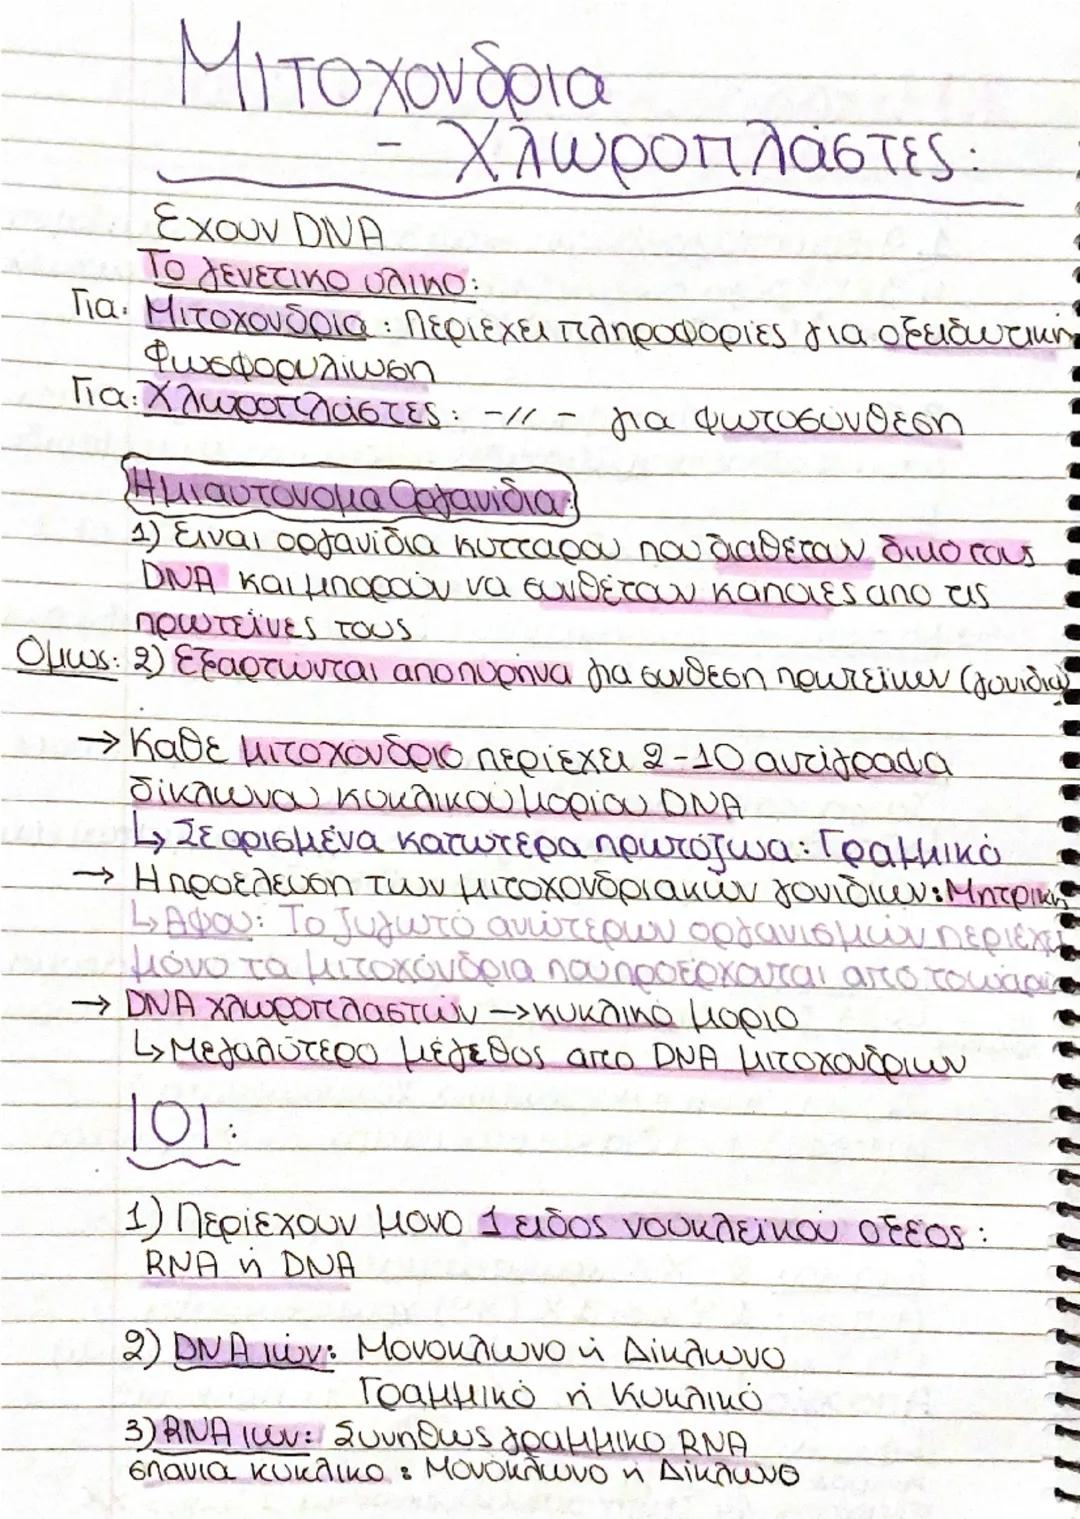 Μιτοχονδρια
- Χλωροπλάστες:
Εχουν DNA
Το γενετικο υλικο:
Για: Μιτοχονδρια: Περιεχει πληροφορίες για οξειδωτική
Φωσφορυλιωση
Για: Χλωροπλάστες: -//- για φωτοσύνθεση
Ημιαυτονομα Οργανιδια:
1) Ειναι οργανίδια κυτταρου που διαθέτουν δικό τους
DNA και μπορούν να συνθέτουν καποιες απο τις
πρωτεϊνες τους
Ομως: 2) Εξαρτώνται απο πυρήνα για συνθεση πρωτεϊνων (γονιδια)
→ Καθε μιτοχόνδριο περιέχει 2-10 αντίγραφα
δίκλωνου κυκλικού μορίου DNA
↳ Σε ορισμένα κατώτερα πρωτόζωα: Γραμμικό
→ Η προέλευση των μιτοχονδριακών γονιδιων: Μητρική
↳ Αφου: Το ζυγωτό ανώτερων οργανισμών περιέχει
μόνο τα μιτοχόνδρια που προέρχονται από το ωάριο
→ DNA χλωροπλαστών → κυκλικό μοριο
↳ Μεγαλύτερο μέγεθος απο DNA μιτοχονδριων
ΙΟΙ:
1) Περιέχουν μονο 1 ειδος νουκλεϊκού οξέος:
RNA ή DNA
2) DNA ιών: Μονοκλωνο ή Δίκλωνο
Γραμμικό ή Κυκλικό
3) RNA ιών: Συνηθως γραμμικο RNA
σπανια κυκλικο: Μονόκλωνο ή Δίκλωνο